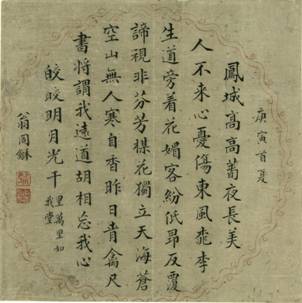 庚寅首夏
鳳城高高夜長美
人不来心憂傷東風桃李
生道旁着花媚客紛低昂反覆
諦視非芬芳楳花獨立天海蒼
空山無人寒自香昨日青禽尺
書將謂我遠道胡相忘我心
皎皎明月光千
里萬里如
我堂
翁同龢